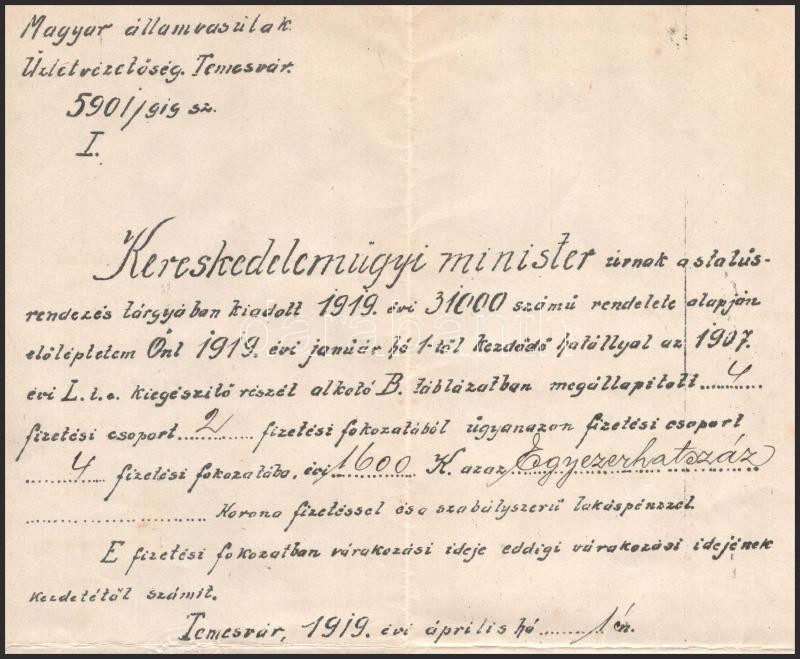 Magyar államvasútak.
Üzletvezetőség. Temesvár.
5901/919 sz.
I.
Kereskedelemügyi minister úrnak a státus-
rendezés tárgyában kiadott 1919. évi 31000 számú rendelete alapján
előléptetem Önt 1919. évi január hó 1-től kezdődő hatállyal az 1907.
évi L. t. c. kiegészítő részét alkotó B. táblázatban megállapított 4
fizetési csoport 2 fizetési fokozatából ugyanazon fizetési csoport
4 fizetési fokozatába, évi 1600 K. azaz Egyezerhatszáz
Korona fizetéssel és a szabályszerű lakáspénzzel.
E fizetési fokozatban várakozási ideje eddigi várakozási idejének
kezdetétől számit.
Temesvár, 1919. évi április hó 1 én.